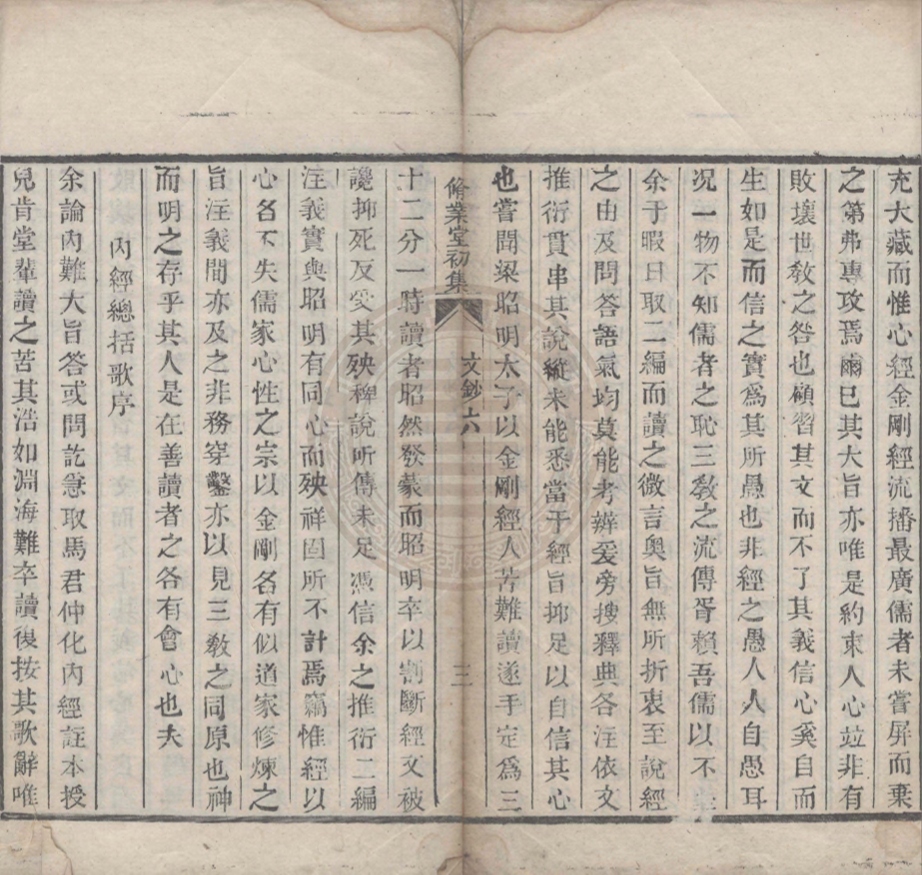 充大藏而惟心經金剛經流播最廣儒者未嘗屏而棄
之第弗專攻焉爾已其大旨亦唯是約束人心竝非有
敗壞世教之咎也顧習其文而不了其義信心奚自而
生如是而信之實爲其所愚也非經之愚人人自愚耳
况一物不知儒者之恥三教之流傳胥賴吾儒以不
余于暇日取二編而讀之微言奥旨無所折衷至說經
之由及問答語氣均莫能考辨爰旁搜釋典各注依文
推衍貫串其說縱未能悉當于經旨抑足以自信其心
也嘗聞梁昭明太子以金剛經人苦難讀遂手定爲三
脩業堂初集 文鈔六 三
十二分一時讀者昭然發蒙而昭明卒以割斷經文被
譏抑死反受其殃稗說所傳未足憑信余之推衍二編
注義實與昭明有同心而殃祥固所不計焉竊惟經以
心名不失儒家心性之宗以金剛名有似道家修煉之
旨注義間亦及之非務穿鑿亦以見三教之同原也神
而明之存乎其人是在善讀者之各有會心也夫
內經總括歌序
余論內難大旨答或問訖急取馬君仲化內經註本授
兒肯堂輩讀之苦其浩如淵海難卒讀後按其歌辭唯